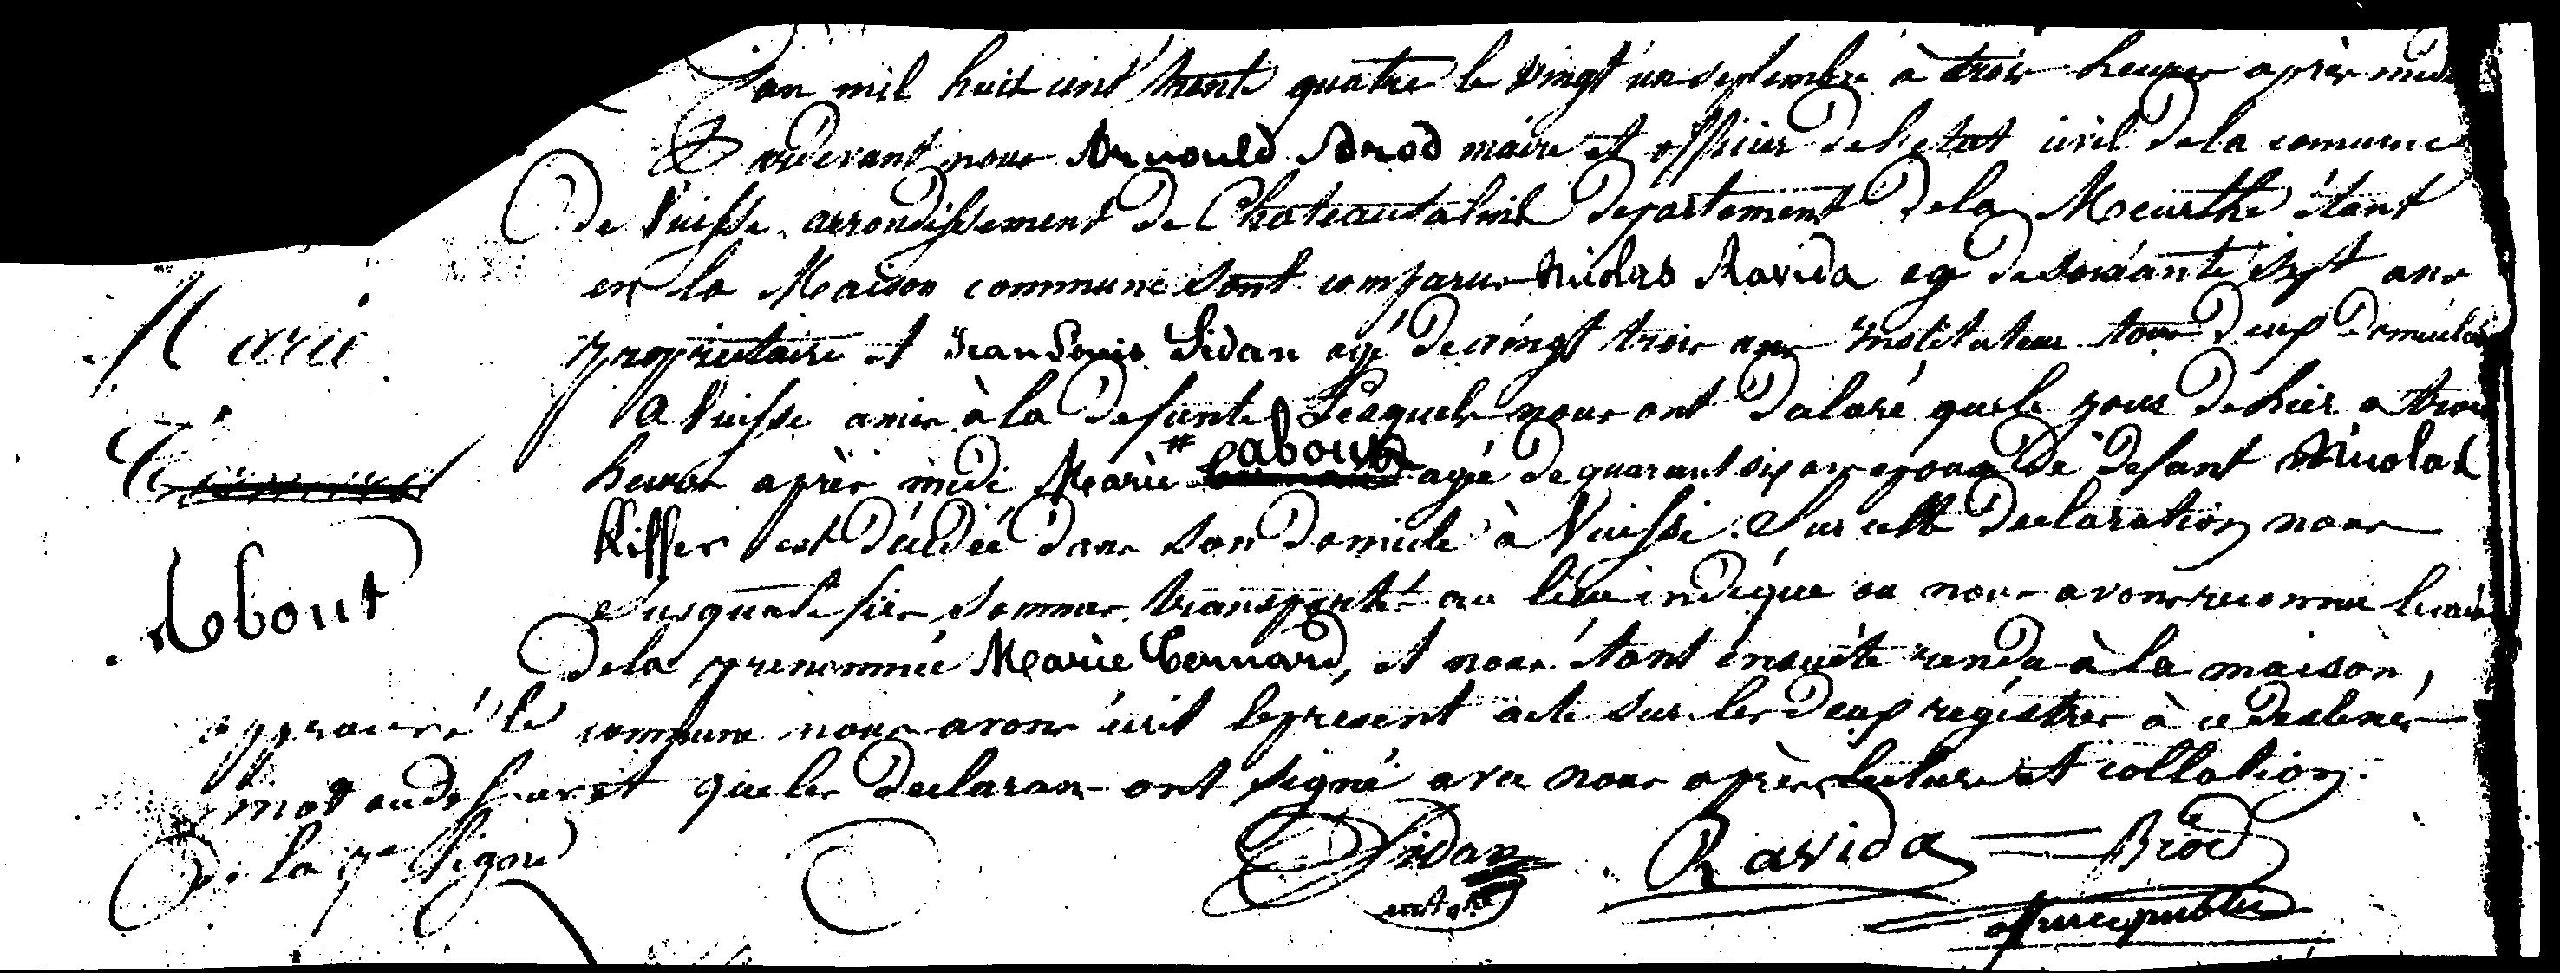 L'an mil huit cent trente quatre le vingt un septembre à trois heures après midi
Pardevant nous Arnould Brod maire et officier de l'etat civil de la comune
de Vuisse arrondissement de Chateausalins departement de la Meurthe étant
en la Maison commune sont comparus Nicolas Ravida agé de soixante sept ans
Marie
propriétaire et Jean Louis Sidan agé de vingt trois ans instituteur tous deux domiciliés
a Vuisse amis à la defunte Lesquels nous ont dalaré que le jour de hier a trois
heures après midi Marie # about agée de quarant six ans epouse de defunt Nicolas
Kiffer est décédée dans son domicile à Vuisse. Sur cette declaration nous
# about
susqualifiés sommes transporté au lieu indiqué ou nous avons reconnu le
de la prenommée Marie Bernard, et nous étant ensuite rendu à la maison,
approuvé le
commune nous avons écrit le présent acte sur les deux régistres à ce destinés
mot au dessus et
que les declarans ont signé avec nous après lecture et collation.
de la 7e ligne
Sidan Ravida Brod